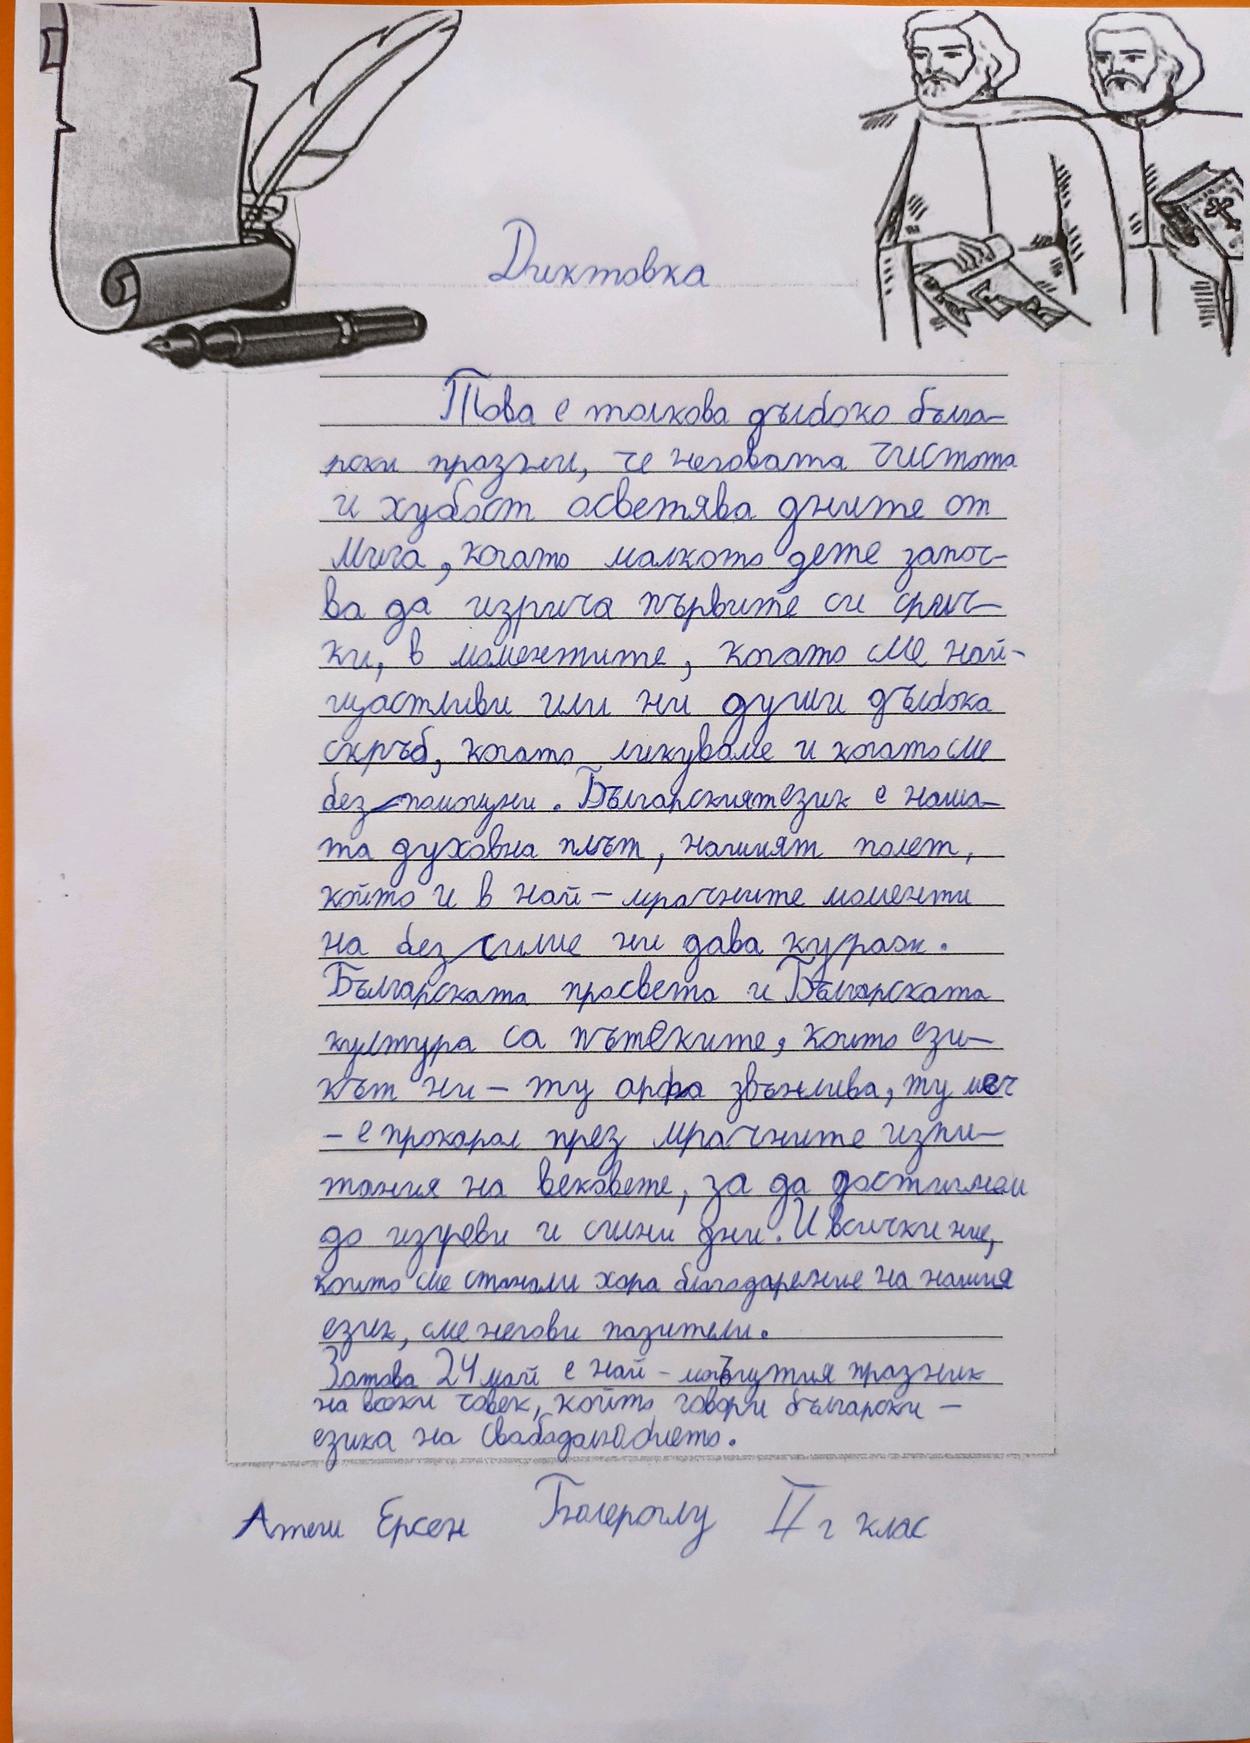 Диктовка
Това е толкова дълбоко бълга-
рски празник, че неговата чистота
и хубост осветява дните от
мига, когато малкото дете започ-
ва да изрича първите си срич-
ки, в моментите, когато сме най-
щастливи или ни души дълбока
скръб, когато ликуваме и когато сме
без помощни. Българският език е наша-
та духовна плът, нашият полет,
който и в най-мрачните моменти
на безсилие ни дава кураж.
Българската просвета и Българската
култура са пътеките, които ези-
кът ни - ту арфа звънлива, ту меч
- е прокарал през мрачните изпи-
тания на вековете, за да достигнем
до изгреви и силни дни. И всички ние,
които сме станали хора благодарение на нашия
език, сме негови пазители.
Затова 24 май е най-могъщия празник
на всеки човек, който говори български -
езика на Свабадалюбието.
Ерсен II г клас